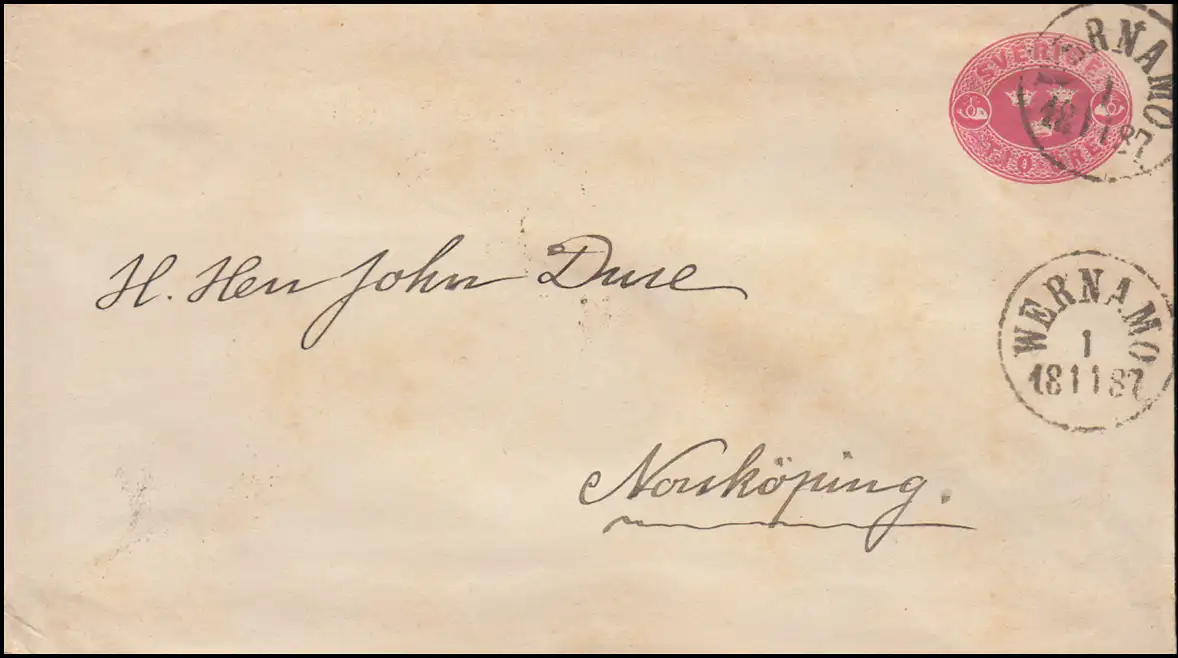 SVERIGE
TIO ÖRE
RNAMO
1
18 11 87
H. Herr John Duse
WERNAMO
1
18 11 87
Norrköping.